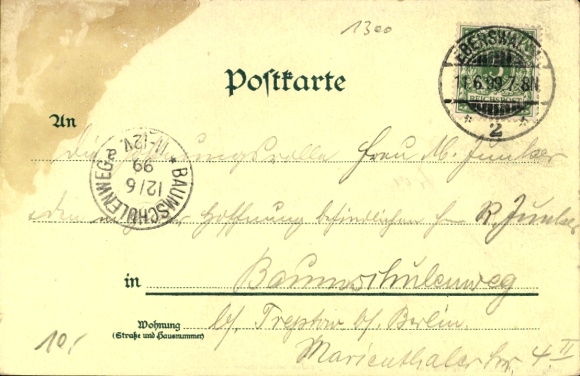 1300
Postkarte
EBERSWALDE
11.6.99.7-8N.
REICHSPOST
* 2 *
An
Frau M. Junker
BAUMSCHULENWEG
12/6
99
11-12V.
Hoffnung befindlichen H R. Junker
in Baumschulenweg
Wohnung
(Straße und Hausnummer)
b/ Treptow b/ Berlin.
Marienthaler Str. 4. II
10,-